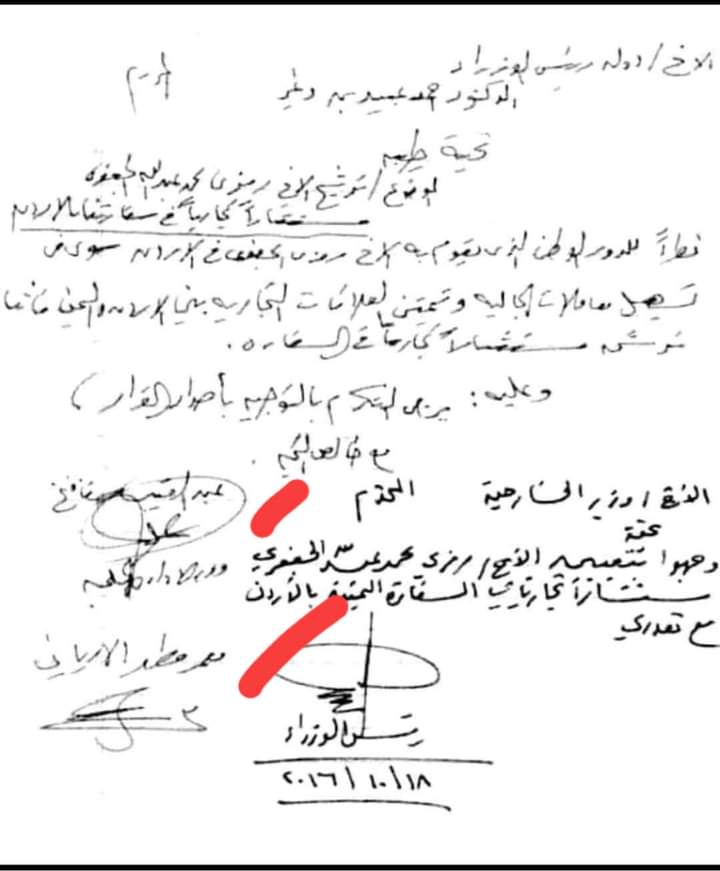 الاخ / دولة رئيس الوزراء
الدكتور احمد عبيد بن دغر المحترم
تحية طيبة
الموضوع / ترشيح الاخ رمزي محمد عبدالله الجعفري
مستشاراً تجارياً في سفارتنا بالاردن
نظراً للدور الوطني الذي يقوم به الاخ رمزي الجعفري في الاردن في
تسهيل معاملات الجالية وتمتين العلاقات التجارية بين الاردن واليمن فاننا
نرشحه مستشاراً تجارياً في السفارة.
وعليه: يرجى التكرم بالتوجيه بأصدار القرار
مع خالص التحية.
الأخ / وزير الخارجية المحترم
تحية
وجهوا بتعيين الأخ / رمزي محمد عبدالله الجعفري
مستشاراً تجارياً في السفارة اليمنية بالأردن
مع تقديري
عبد الرقيب
وزير الادارة المحلية
معمر مطهر الارياني
رئيس الوزراء
٢٠١٦/١٠/١٨